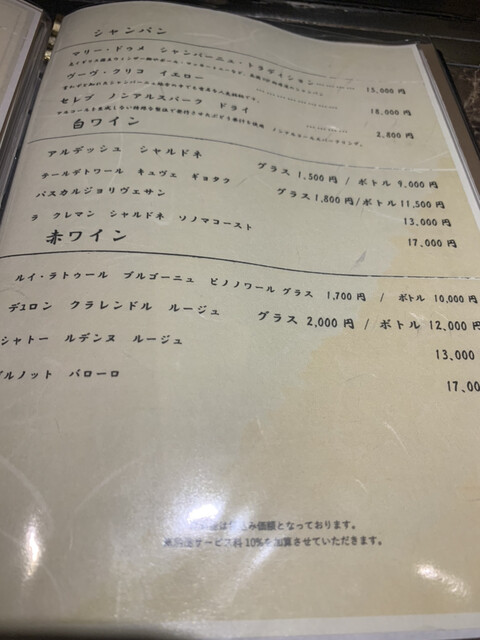 シャンパン
マリー・ドゥメ シャンパーニュ・トラディション 15,000 円
ヴーヴ・クリコ イエロー 18,000 円
セレブ ノンアルスパーク ドライ 2,800 円
白ワイン
アルデッシュ シャルドネ グラス 1,500 円 / ボトル 9,000 円
テールデトワール キュヴェ ギョタウ グラス 1,800 円/ボトル 11,500 円
パスカルジョリヴェサン 13,000 円
ラ クレマン シャルドネ ソノマコースト 17,000 円
赤ワイン
ルイ・ラトゥール ブルゴーニュ ピノノワール グラス 1,700 円 / ボトル 10,000 円
デュロン クラレンドル ルージュ グラス 2,000 円 / ボトル 12,000 円
シャトー ルデンヌ ルージュ 13,000
ブルノット バローロ 17,00
込み価額となっております。
サービス料 10%を加算させていただきます。